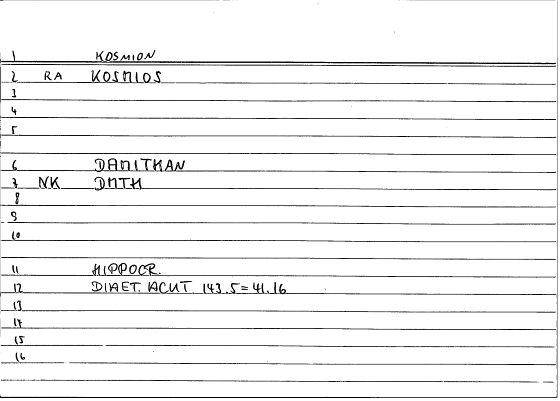 1 KOSMION
2 RA KOSMIOS
3
4
5
6 DAMITKAN
7 NK DMTK
8
9
10
11 HIPPOCR.
12 DIAET. ACUT. 143.5=41.16
13
14
15
16